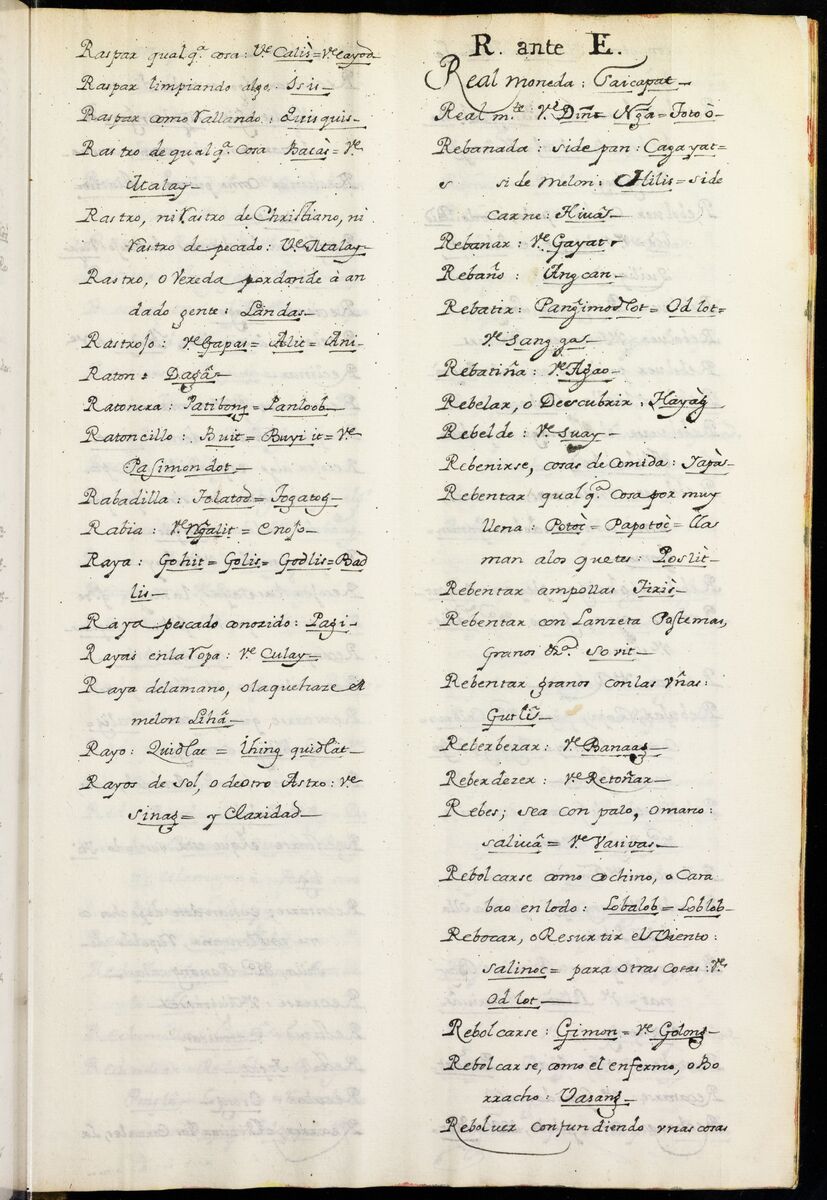 Raspar qual q.ª cosa: V.e Calìs = V.e Cayod
Raspar limpiando algo: Isis
Raspar como rallando: Quisquis
Rastro de qual q.ª cosa Bacàs = V.e
Atalay
Rastro, ni rastro de Christiano, ni
rastro de pecado: V.e Atalay
Rastro, o Vereda por donde à an
dado gente: Landas
Rastrojo: V.e Gapas = Alic = Ani
Raton: Dagâ
Ratonera: Patibong = Panloob
Ratoncillo: Buit = Buyi it = V.e
Pasimondot
Rabadilla: Tolatod = Togatog
Rabia: V.e Ng̃alit = enojo
Raya: Gohit = Golis = Godlis = Bad
lis
Raya pescado conozido: Pagi
Rayas en la ropa: V.e Culay
Raya dela mano, o la que haze el
melon Lihâ
Rayo: Quidlat = ihing quidlat
Rayos de sol, o de otro Astro: V.e
sinag = y Claridad
R. ante E.
Real moneda: Saicapat
Real m.te V.e Diñt Ng̃a = Totoò
Rebanada: side pan: Cagayat =
si de melon: Hilis = side
carne: Hiuàs
Rebanar: V.e Gayat
Rebaño: Angcan
Rebatir: Pang̃imodlot = Odlot =
V.e sang gas
Rebatiña: V.e Agao
Rebelar, o Descubrir: Hayàg
Rebelde: V.e Suay
Rebenirse, cosas de comida: Tapàs
Rebentar qual q.ª cosa por muy
llena: Potòc = Papotòc = lla
man alos quetes: Poslìt
Rebentar ampollas Tiris
Rebentar con Lanzeta Postemas,
granos &c.ª Sorit
Rebentar granos con las vñas:
Gutlîs
Reberberar: V.e Banaag
Reberdezer: V.e Retoñar
Rebes; sea con palo, o mano:
saliuâ = V.e Vasivas
Rebolcarse como cochino, o Cara
bao en lodo: Lobalob = Loblob
Rebocar, o Resurtir el Viento:
Salinoc = para otras cosas: V.e
Odlot
Rebolcarse: Gimon = V.e Golong
Rebolcarse, como el enfermo, o Bo
rracho: Vasang
Reboluer confundiendo vnas cosas